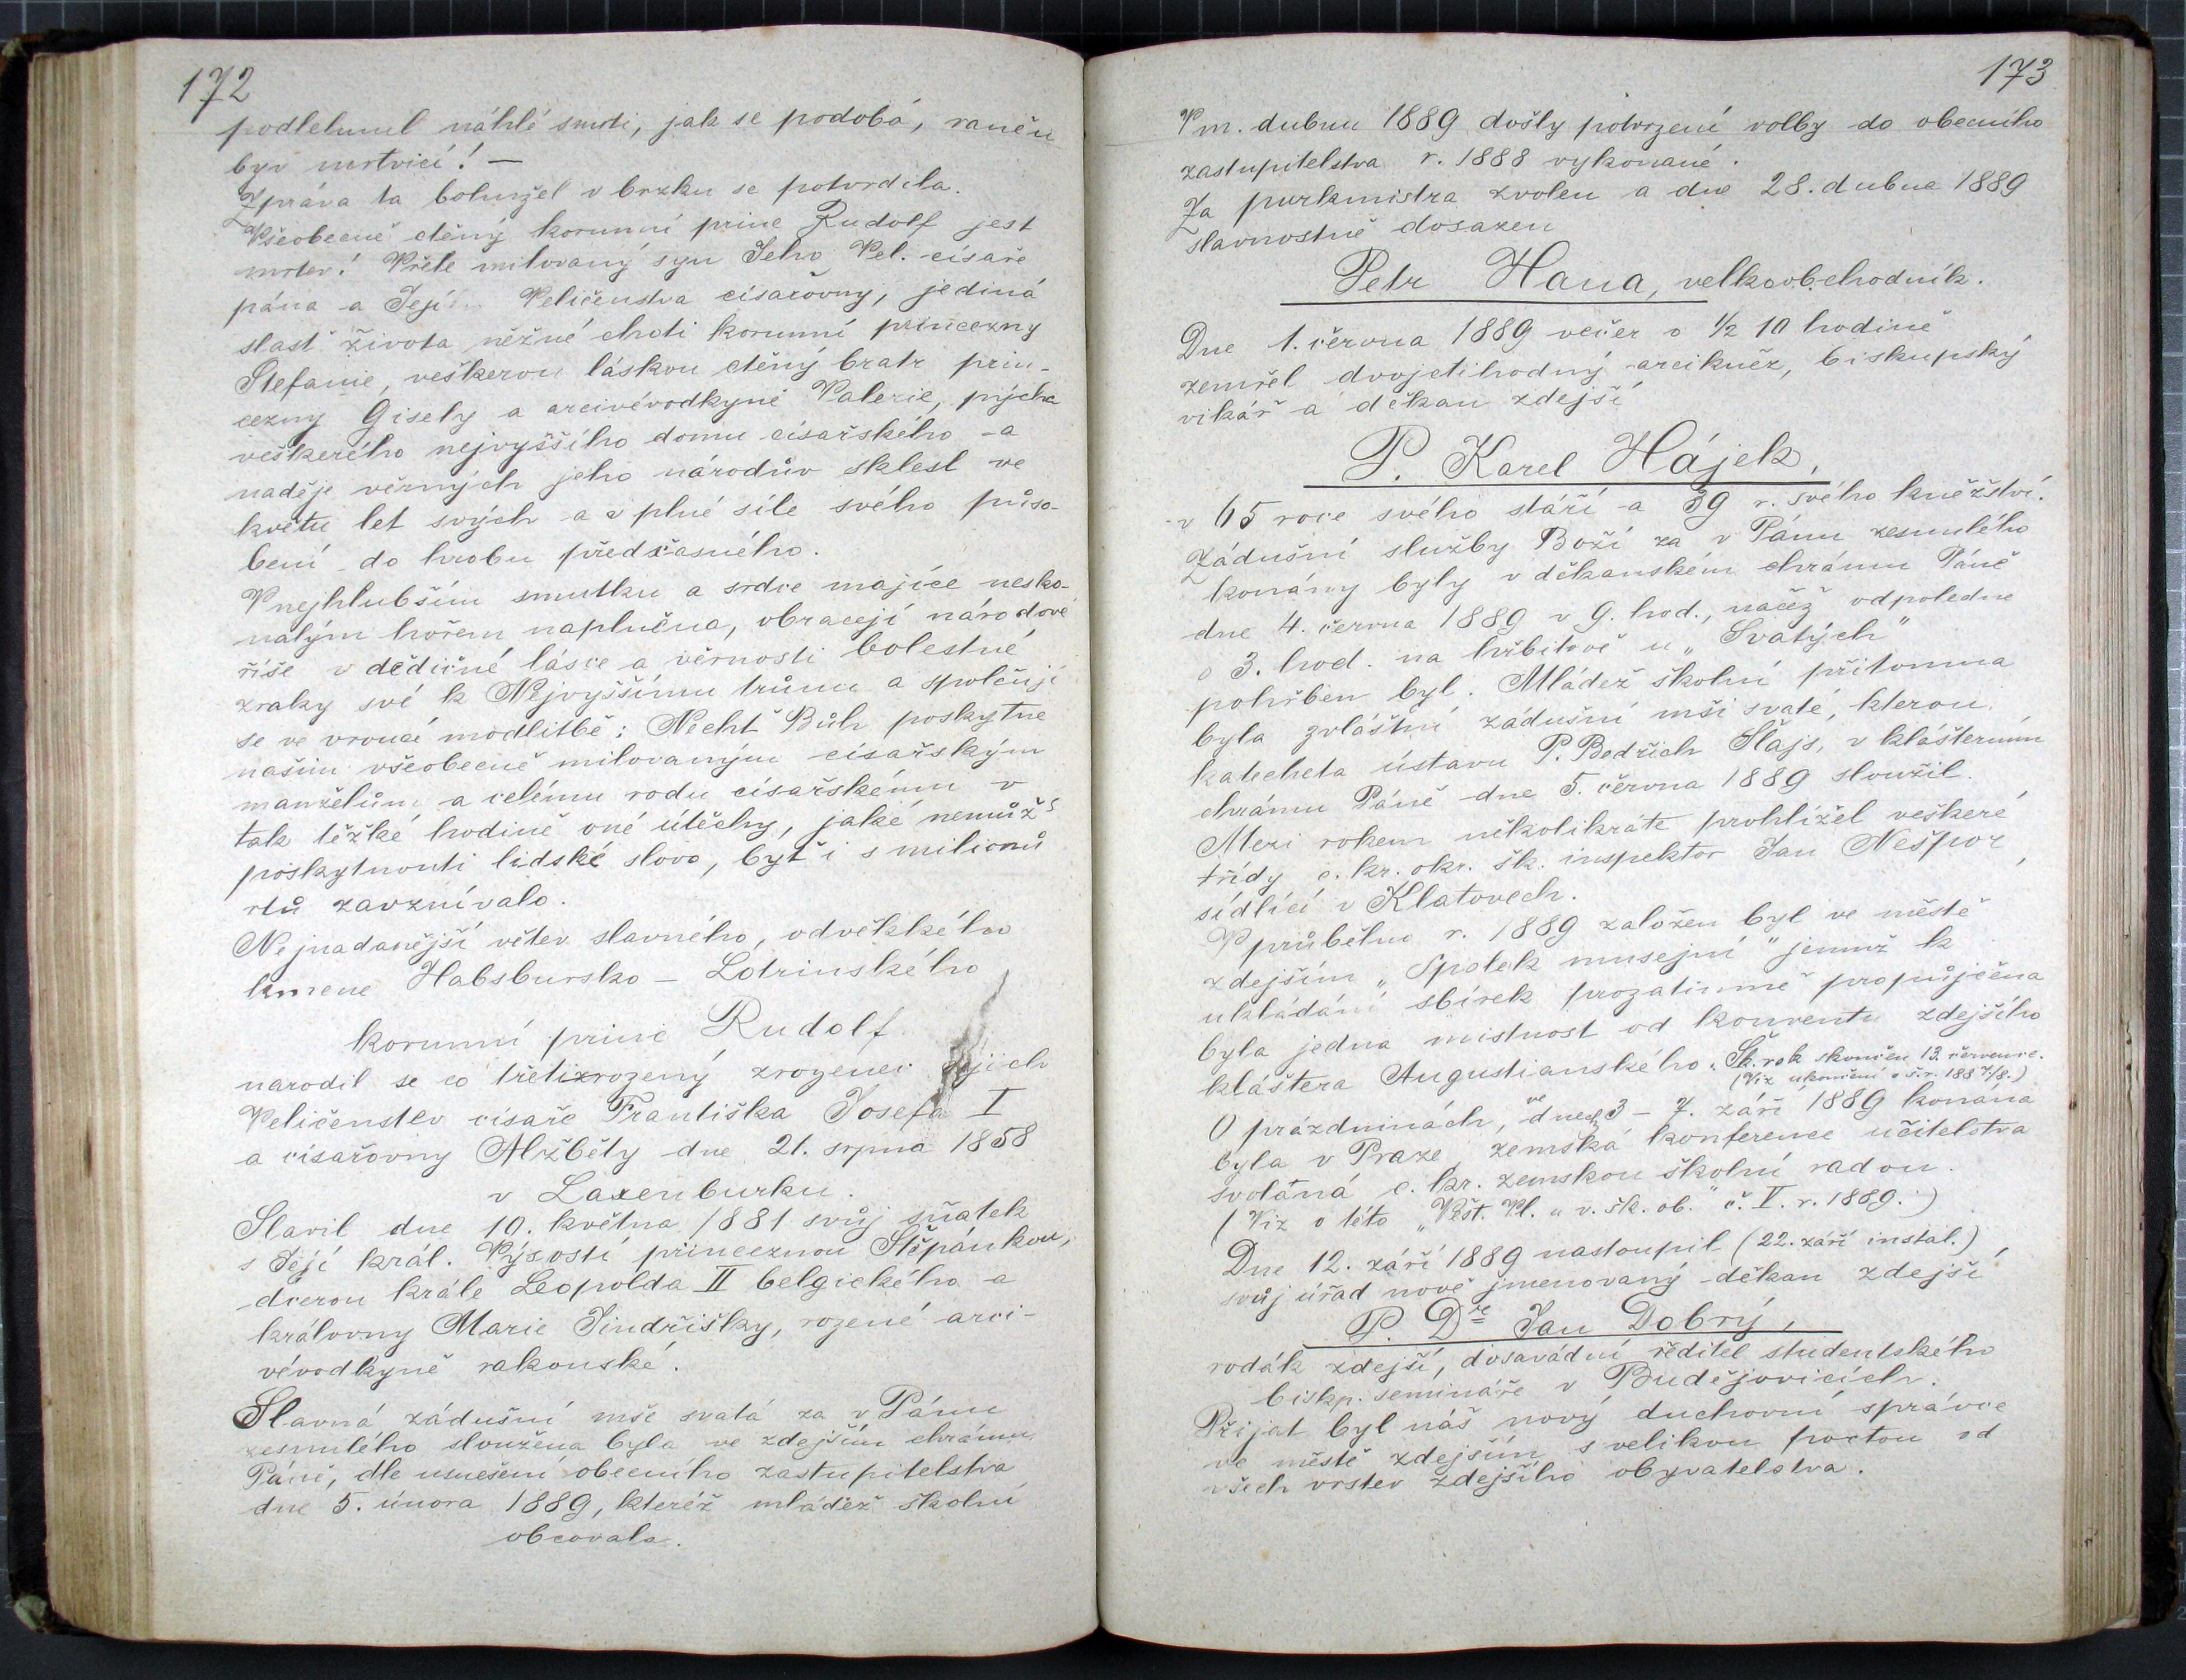 172
podlehnul náhlé smrti, jak se podobá, raněn
byv mrtvicí! —
Zpráva ta bohužel v brzku se potvrdila.
Všeobecně ctěný korunní princ Rudolf jest
mrtev! Vřele milovaný syn Jeho Vel. císaře
pána a Její Veličenstva císařovny, jediná
slast života něžné choti korunní princezny
Stefanie, veškerou láskou ctěný bratr prin-
cezny Gisely a arcivévodkyně Valerie, pýcha
veškerého nejvyššího domu císařského a
naděje věrných jeho národův sklesl ve
květu let svých a v plné síle svého půso-
bení do hrobu předčasného.
V nejhlubším smutku a srdce majíce nesko-
nalým hořem naplněna, obracejí národové
říše v dědičné lásce a věrnosti bolestné
zraky své k Nejvyššímu trůnu a spolčují
se ve vroucí modlitbě: Nechť Bůh poskytne
našim všeobecně milovaným císařským
manželům a celému rodu císařskému v
tak těžké hodině oné útěchy, jaké nemůž
poskytnouti lidské slovo, byť i s milionů
rtů zavznívalo.
Nejnadanější větev slavného, odvěkkého
kmene Habsbursko - Lotrinského
korunní princ Rudolf
narodil se co třetizrozený zrozenec Jejich
Veličenstev císaře Františka Josefa I
a císařovny Alžběty dne 21. srpna 1858
v Laxenburku.
Slavil dne 10. května 1881 svůj sňatek
s Její král. Výsostí princeznou Štěpánkou,
dcerou krále Leopolda II belgického a
královny Marie Jindřišky, rozené arci-
vévodkyně rakouské.
Slavná zádušní mše svatá za v Pánu
zesnulého sloužena byla ve zdejším chrámu
Páně, dle usnešení obecního zastupitelstva
dne 5. února 1889, kteréž mládež školní
obcovala.
173
V m. dubnu 1889 došly potvrzení volby do obecního
zastupitelstva r. 1888 vykonané.
Za purkmistra zvolen a dne 28. dubna 1889
slavnostně dosazen
Petr Hana, velkoobchodník.
Dne 1. června 1889 večer o ½ 10 hodině
zemřel dvojctihodný arcikněz, biskupský
vikář a děkan zdejší
P. Karel Hájek,
v 65 roce svého stáří a 39 r. svého kněžství.
Zádušní služby Boží za v Pánu zesnulého
konány byly v děkanském chrámu Páně
dne 4. června 1889 v 9. hod., načež odpoledne
o 3. hod. na hřbitově u „Svatých"
pohřben byl. Mládež školní přítomna
byla zvláštní zádušní mši svaté, kterou
katecheta ústavu P. Bedřich Šlajs, v klášterním
chrámu Páně dne 5. června 1889 sloužil.
Mezi rokem několikráte prohlížel veškeré
třídy c. kr. okr. šk. inspektor Jan Nešpor,
sídlící v Klatovech.
V průběhu r. 1889 založen byl ve městě
zdejším „Spolek musejní" jemuž k
ukládání sbírek prozatimně propůjčena
byla jedna místnost od konventu zdejšího
kláštera Augustianského. Šk. rok skončen 13. července.
(Viz ukončení š. r. 188 7/8.)
O prázdninách, ve dnech 3 - 7. září 1889 konána
byla v Praze zemská konference učitelstva
svolaná c. kr. zemskou školní radou.
(Viz o této „Věst. Vl. u v. šk. ob." č. V. r. 1889.)
Dne 12. září 1889 nastoupil (22. září instal.)
svůj úřad nově jmenovaný děkan zdejší
P. Dre Jan Dobrý,
rodák zdejší, dosavádní ředitel studentského
biskp. semináře v Budějovicích.
Přijat byl náš nový duchovní správce
ve městě zdejším s velikou poctou od
všech vrstev zdejšího obyvatelstva.